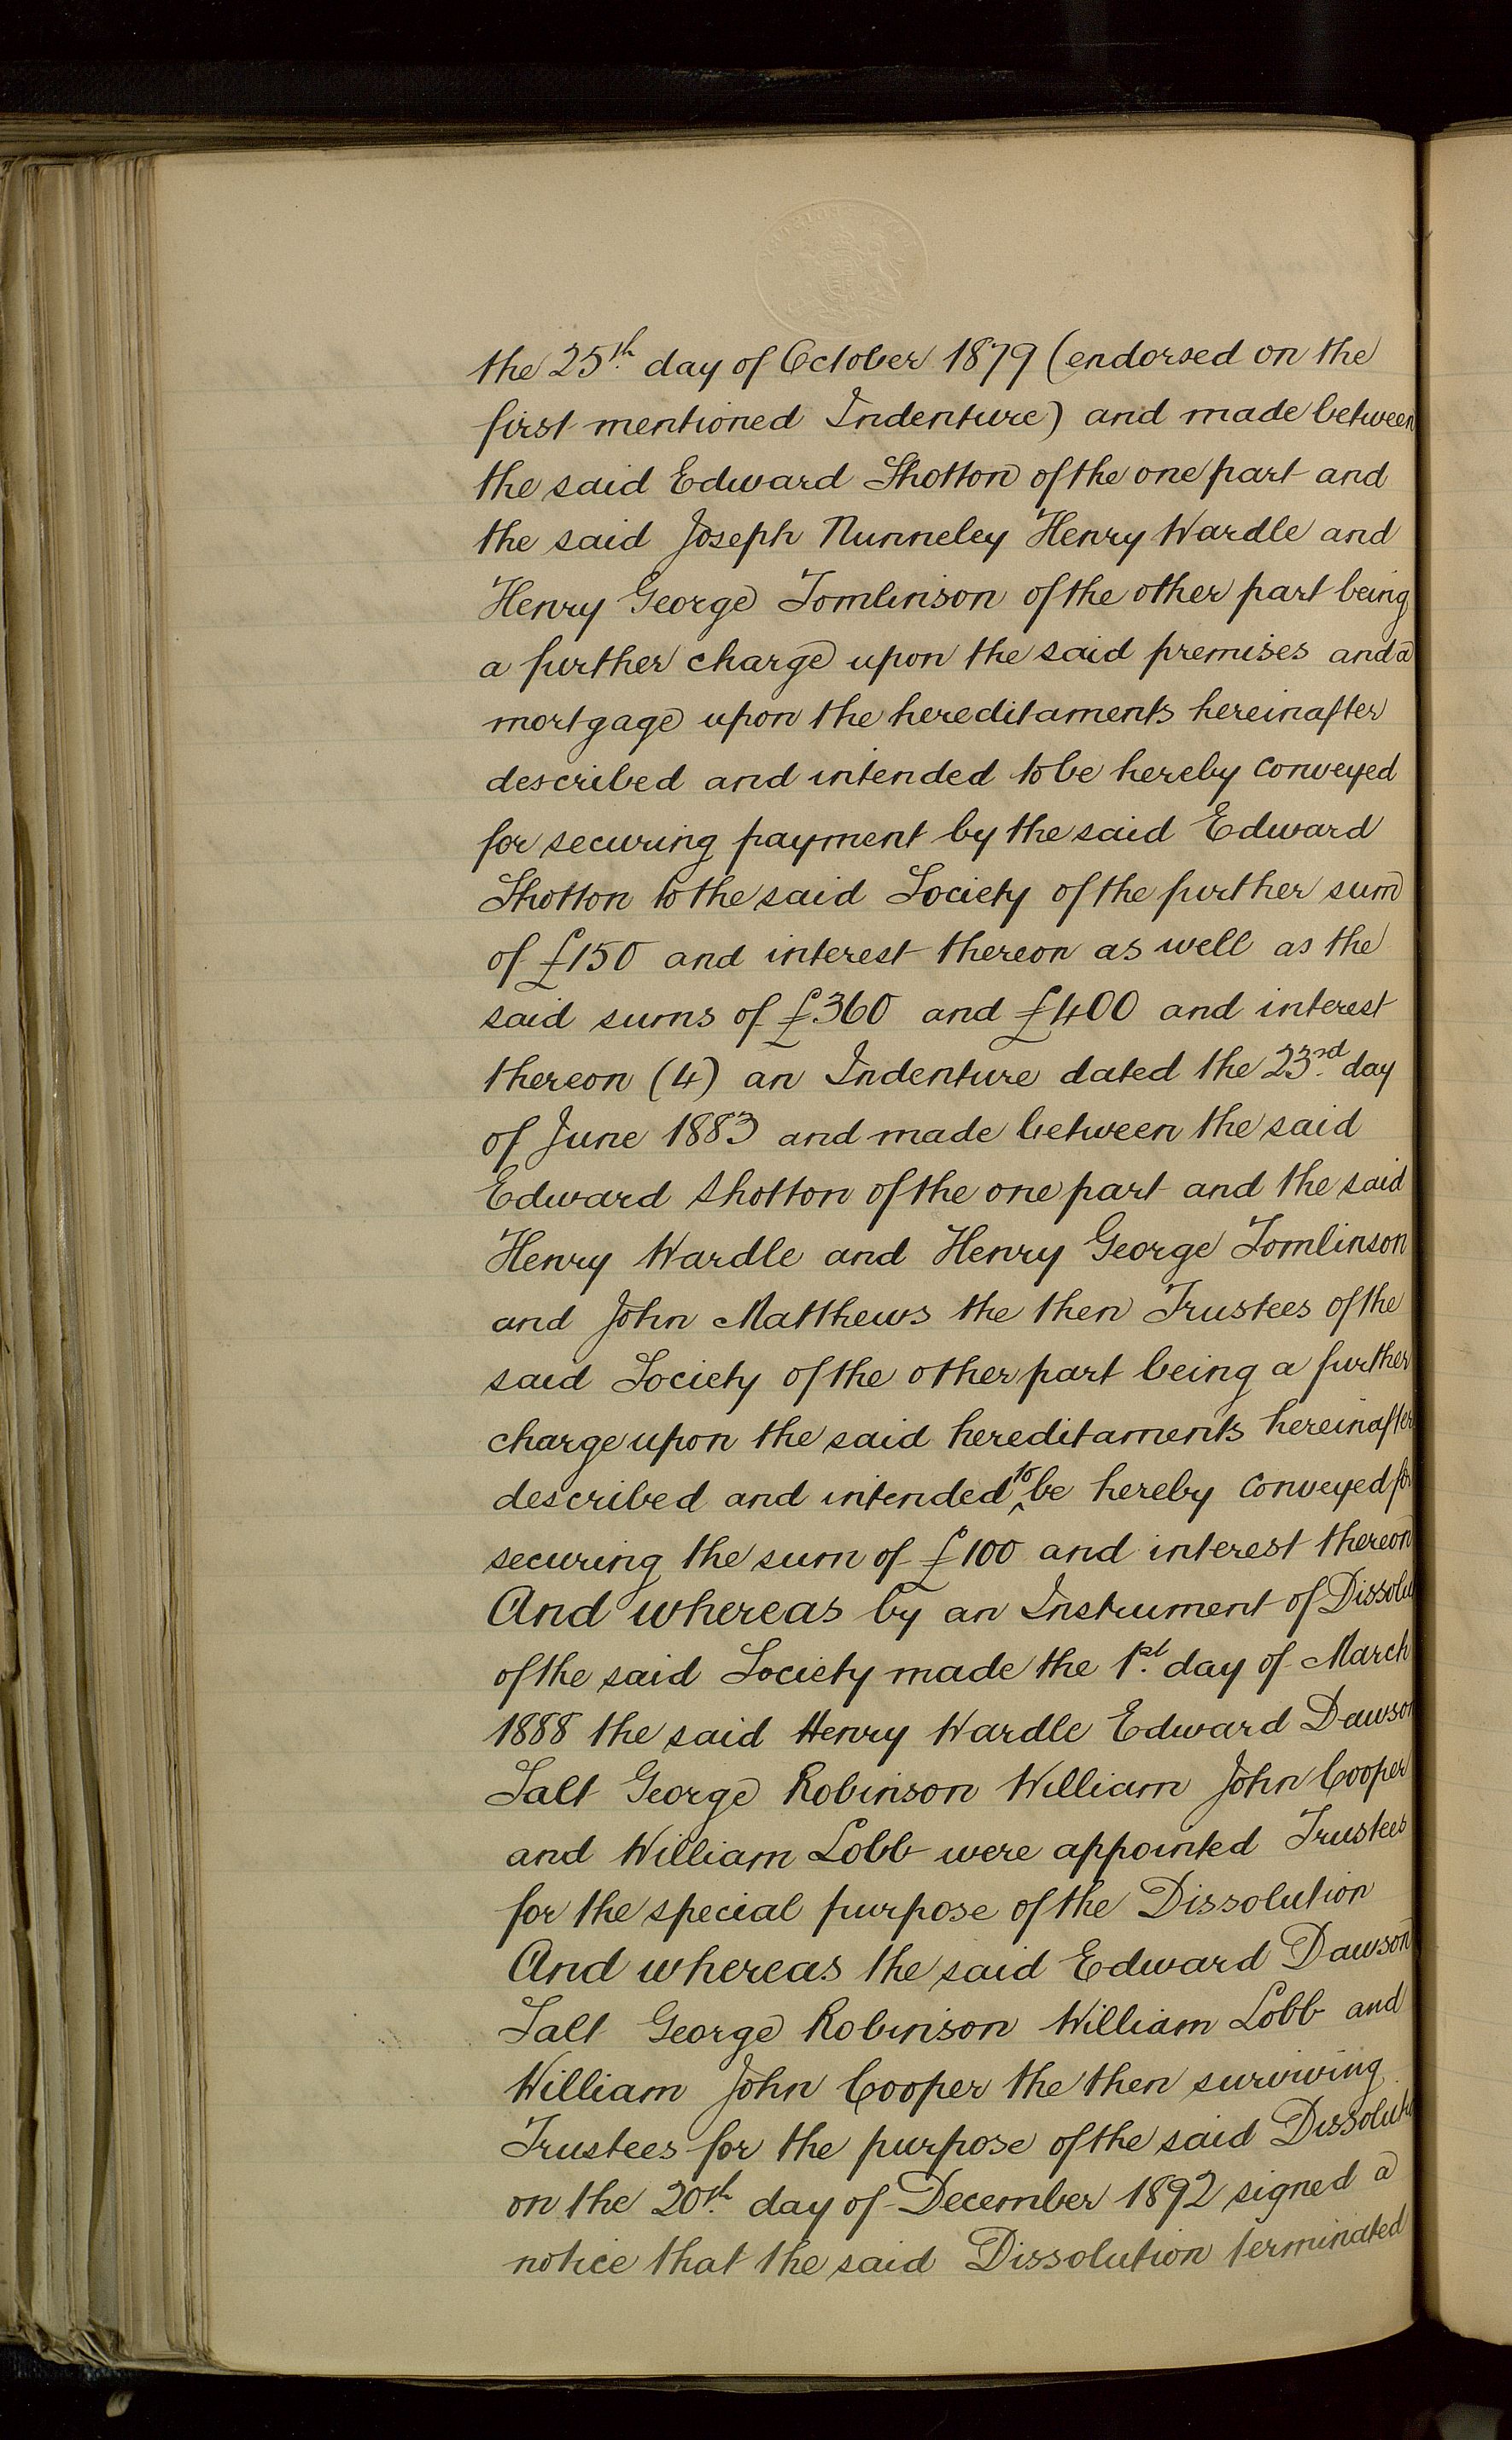 the 25th day of October 1879 (endorsed on the
first mentioned Indenture) and made between
the said Edward Shotton of the one part and
the said Joseph Nunneley Henry Wardle and
Henry George Tomlinson of the other part being
a further charge upon the said premises and a
mortgage upon the hereditaments hereinafter
described and intended to be hereby conveyed
for securing payment by the said Edward
Shotton to the said Society of the further sum
of £150 and interest thereon as well as the
said sums of £360 and £400 and interest
thereon (4) an Indenture dated the 23rd day
of June 1883 and made between the said
Edward Shotton of the one part and the said
Henry Wardle and Henry George Tomlinson
and John Matthews the then Trustees of the
said Society of the other part being a further
charge upon the said hereditaments hereinafter
described and intended to be hereby conveyed for
securing the sum of £100 and interest thereon
And whereas by an Instrument of Dissolu
of the said Society made the 1st day of March
1888 the said Henry Wardle Edward Dawson
Salt George Robinson William John Cooper
and William Lobb were appointed Trustees
for the special purpose of the Dissolution
And whereas the said Edward Dawson
Salt George Robinson William Lobb and
William John Cooper the then surviving
Trustees for the purpose of the said Dissoluti
on the 20th day of December 1892 signed a
notice that the said Dissolution terminated